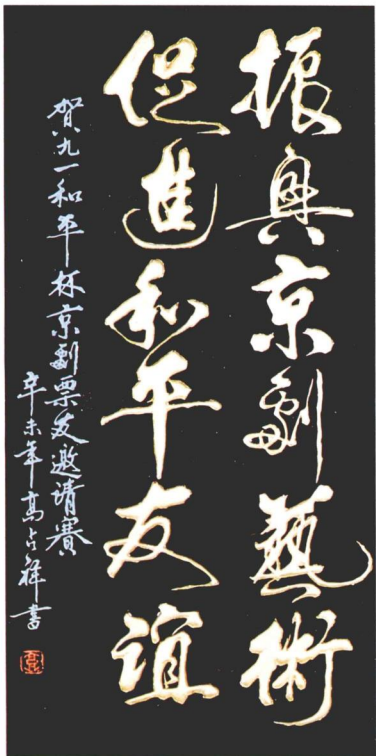 振兴京剧藝術
促進和平友谊
賀九一和平杯京劇票友邀請賽
辛未年高占祥書